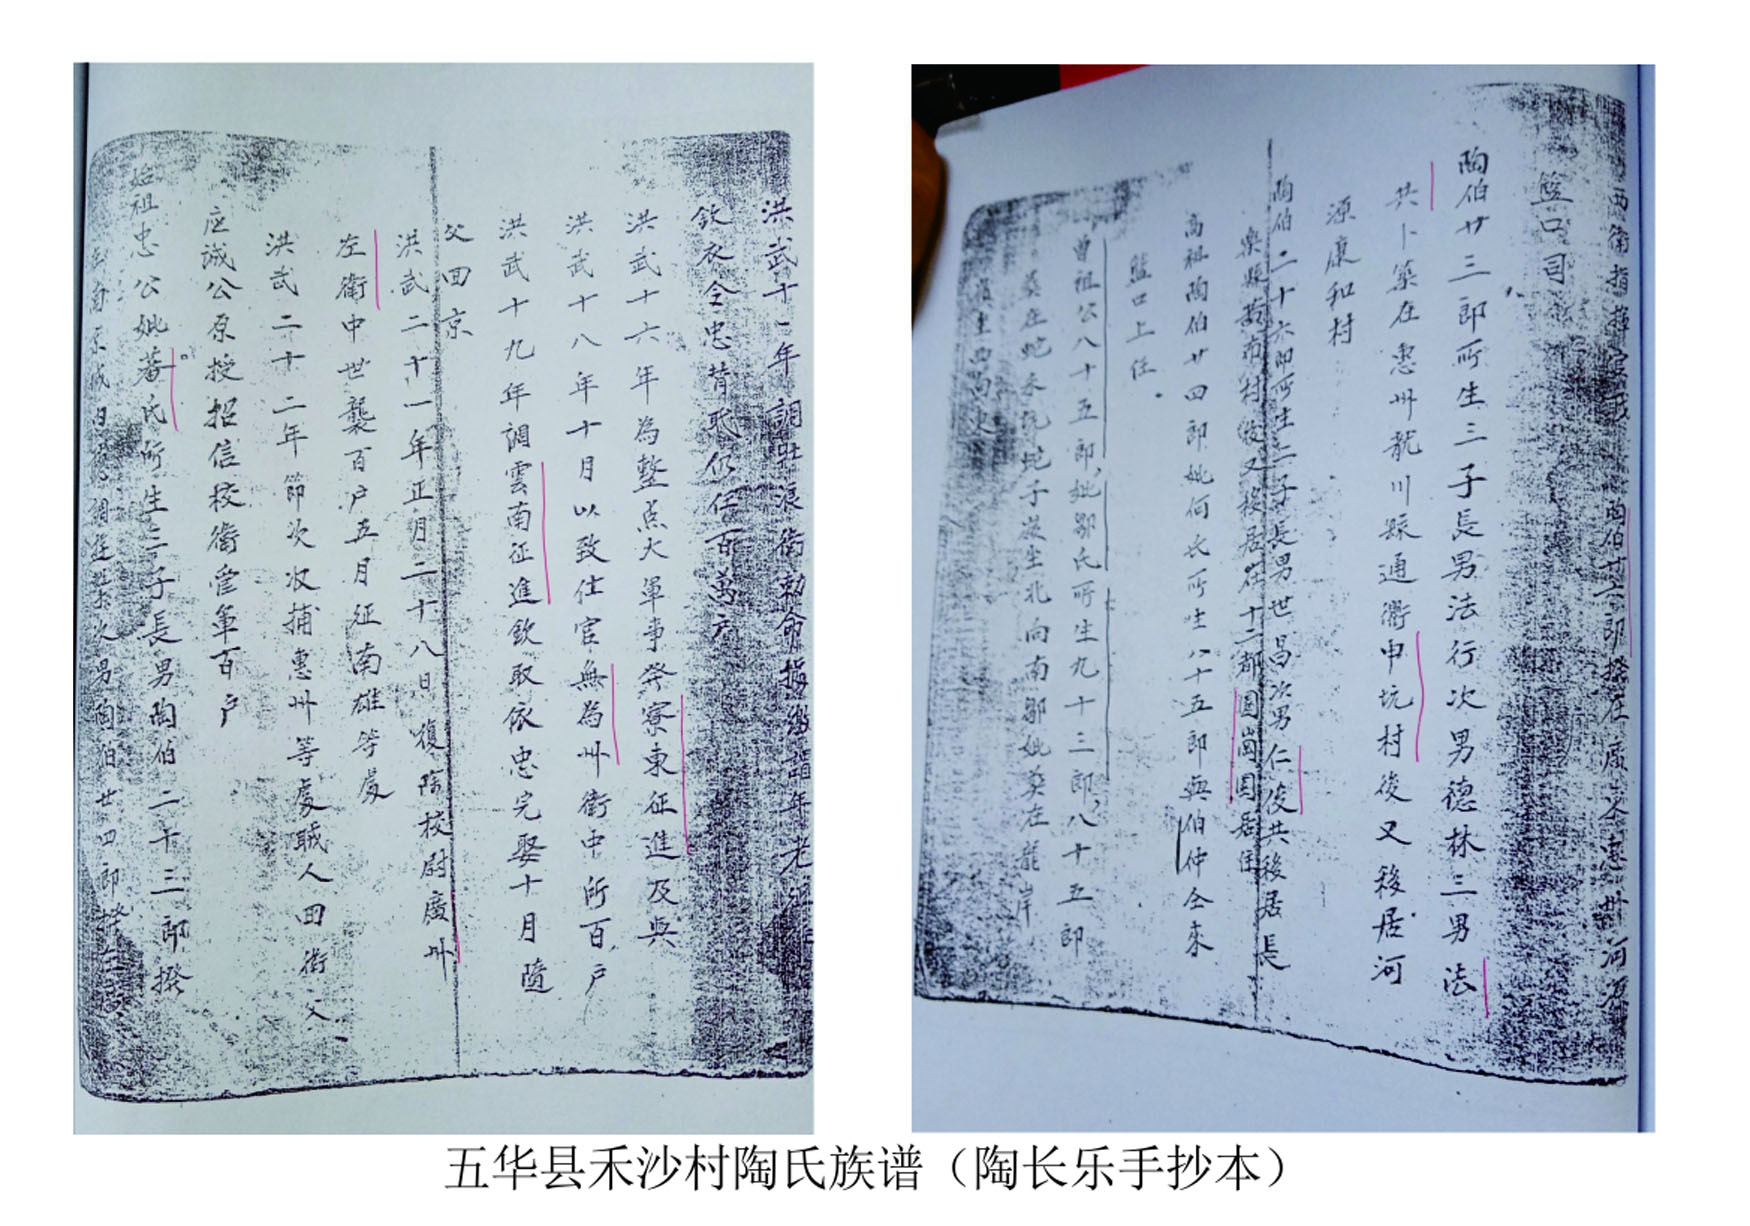 洪武十一年調莊浪衛勅命
欽衣仝忠替職仍任百萬户
洪武十六年為整点大軍事発寮東征進及與
洪武十八年十月以致仕官無為州衛中所百户
洪武十九年調雲南征進欽取依忠完娶十月隨
父回京
洪武二十一年正月二十八日復除校尉廣州
左衛中世襲百户五月征南雄等處
洪武二十二年節次収捕惠州等處賊人回衛父
应诚公原授招信校衛管軍百户
始祖忠公妣蕃氏所生二子長男陶伯二十三郎撥
次男陶伯廿四郎撥
陶伯廿三郎撥在
籃口司
陶伯廿三郎所生三子長男法行次男德林三男法
共卜築在惠州龍川縣通衢申坑村後又移居河
源康和村
陶伯二十六郎所生二子長男世昌次男仁俊共移居長
樂縣黄布村後又移居在十二都圓崗圓居住
高祖陶伯廿四郎妣何氏所生八十五郎與伯仲仝來
籃口上任
曾祖公八十五郎妣鄒氏所生九十三郎八十五郎
坐北向南鄒妣葵在龍岸
五华县禾沙村陶氏族谱（陶长乐手抄本）